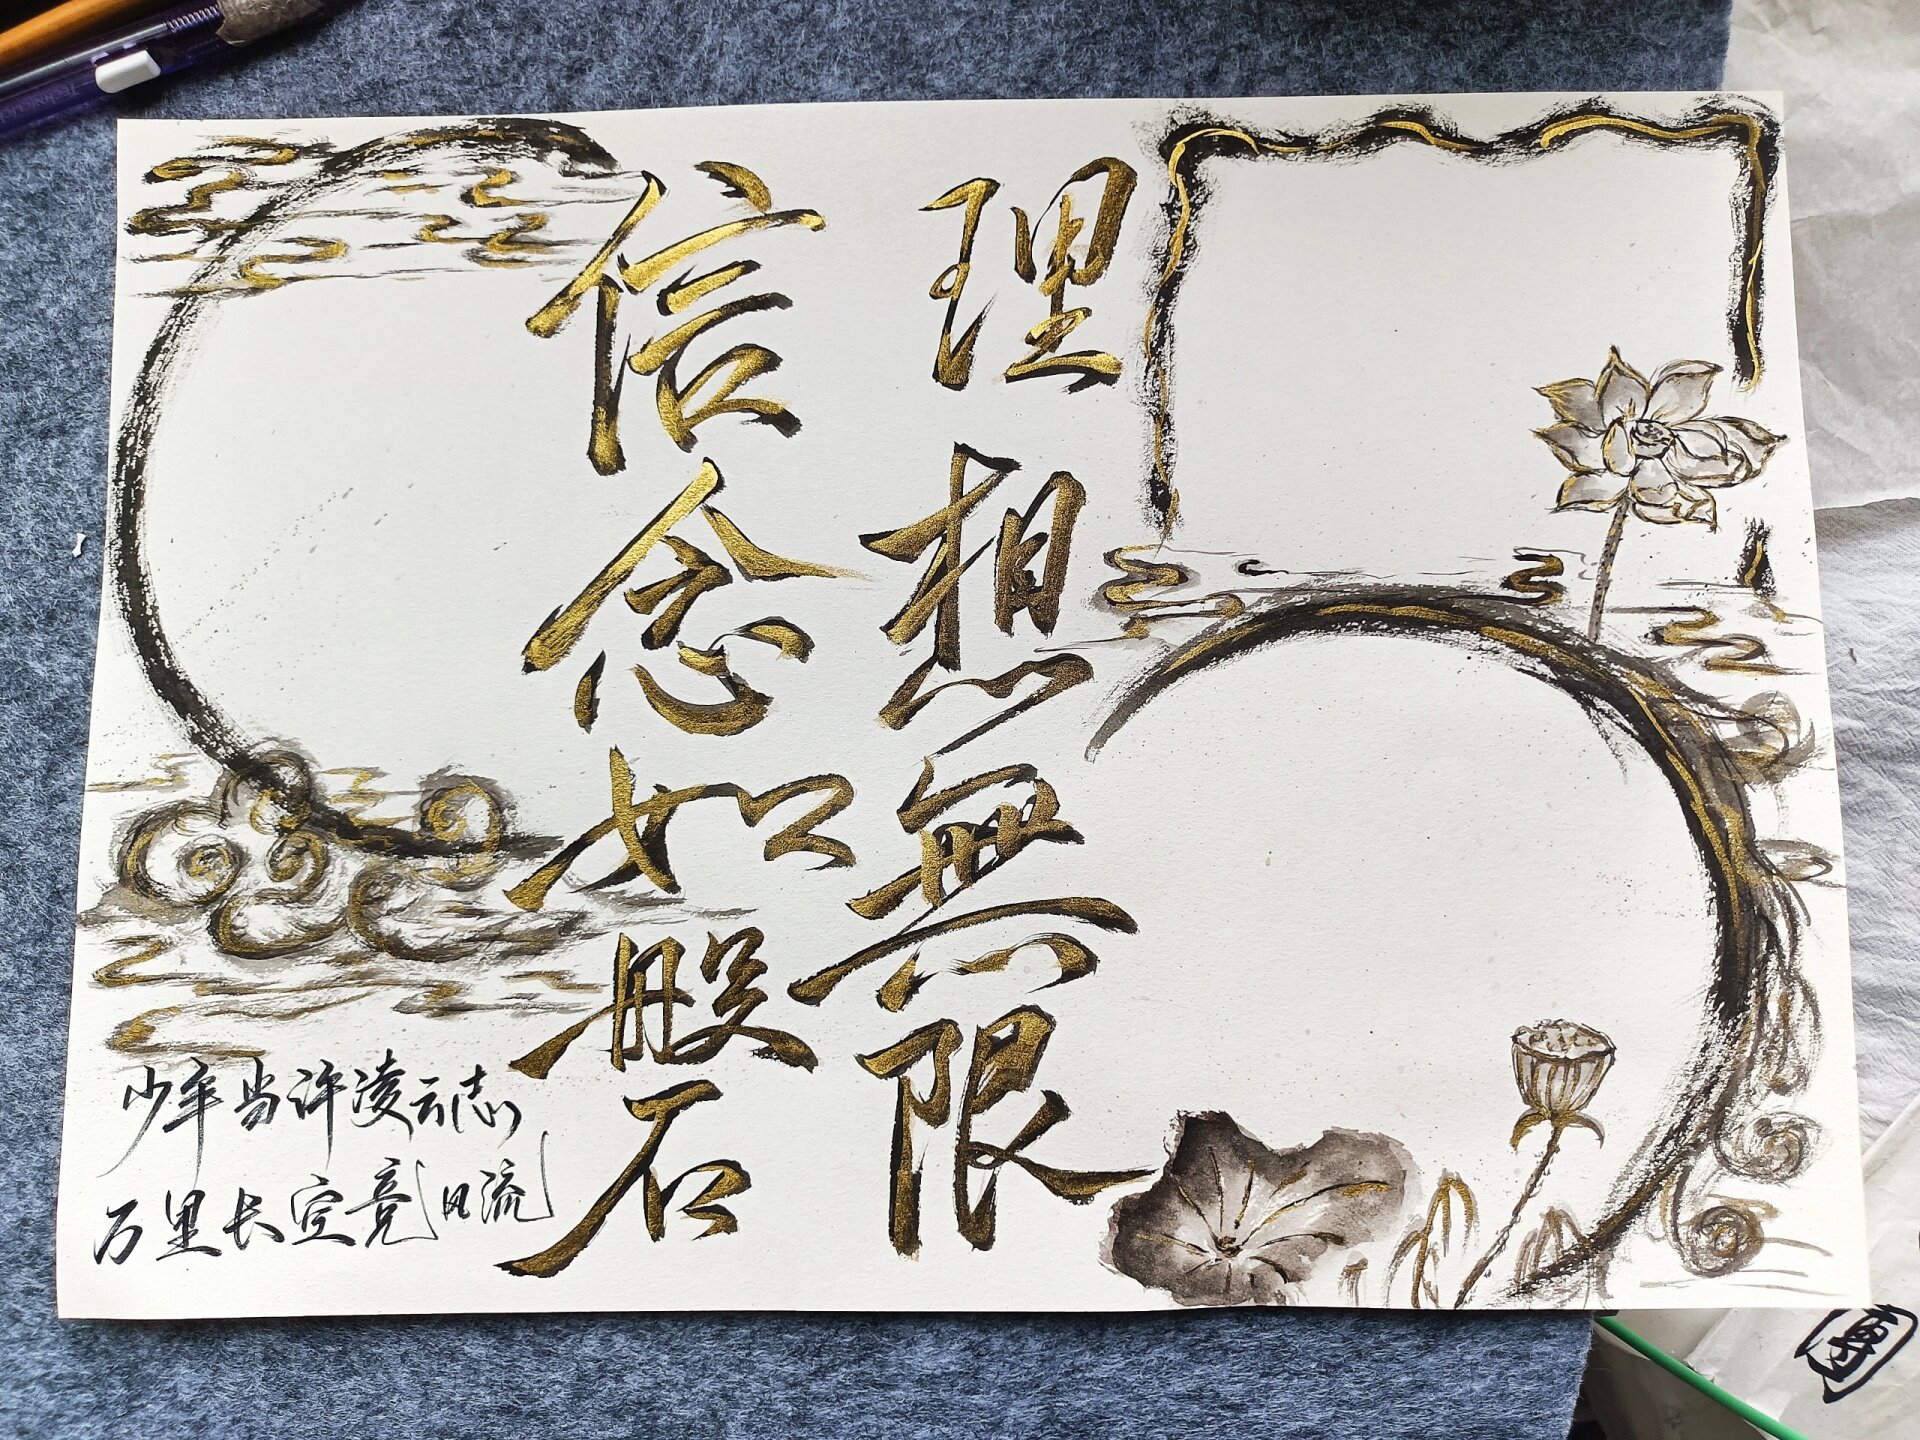 理想無限
信念如磐
少年当许凌云志
万里长空竞流